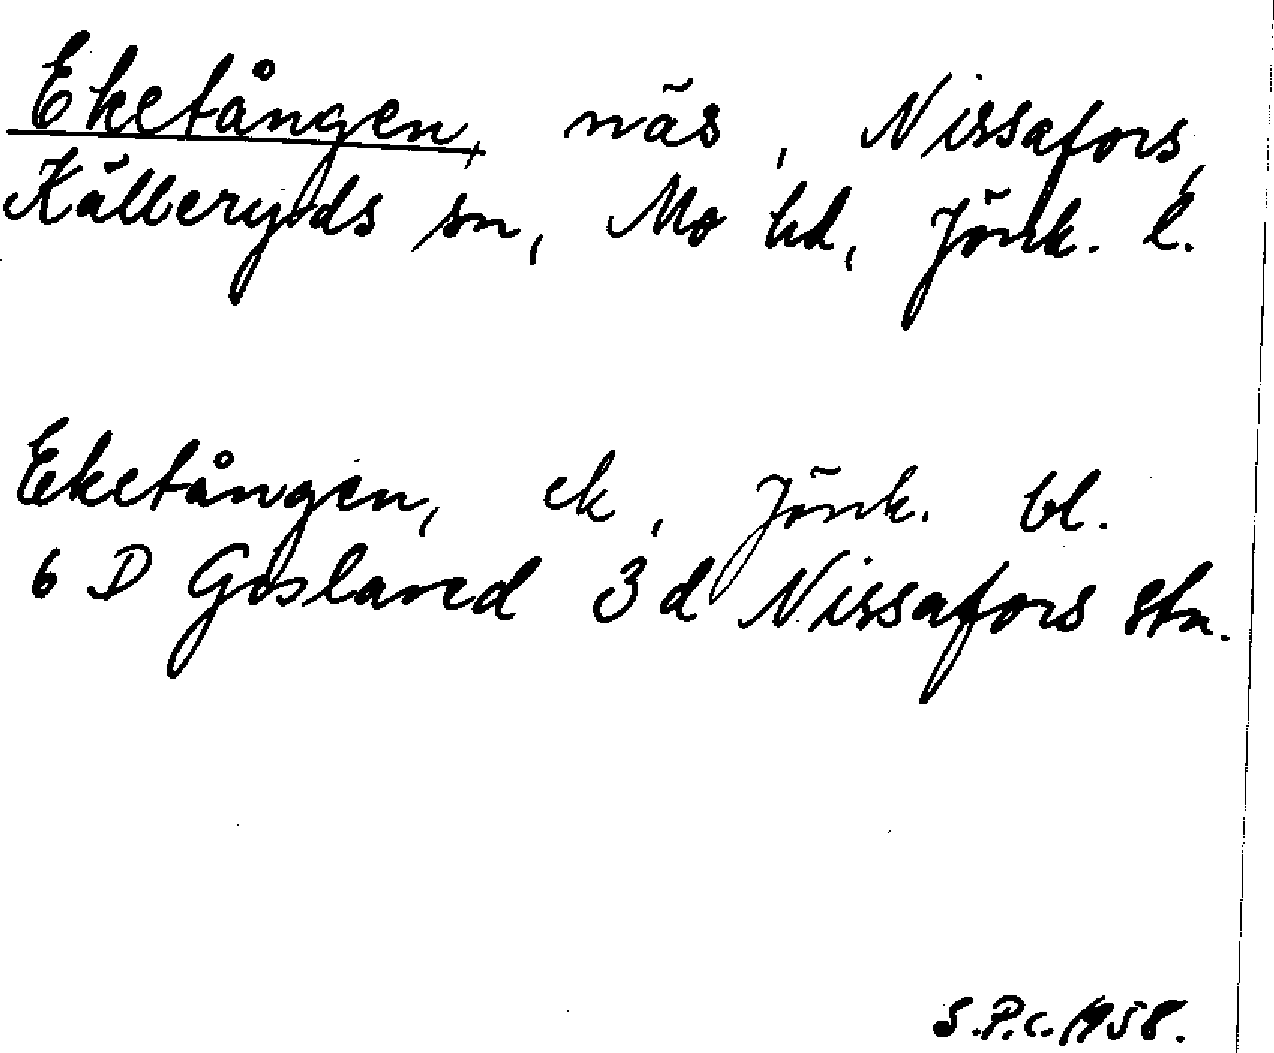 Eketången, näs, Nissafors,
Källeryds sn, Mo hd, Jönk. l.
Eketången, ek, Jönk. bl.
6 D Gislaved 3 d Nissafors stn.
S.P.c. 1958.